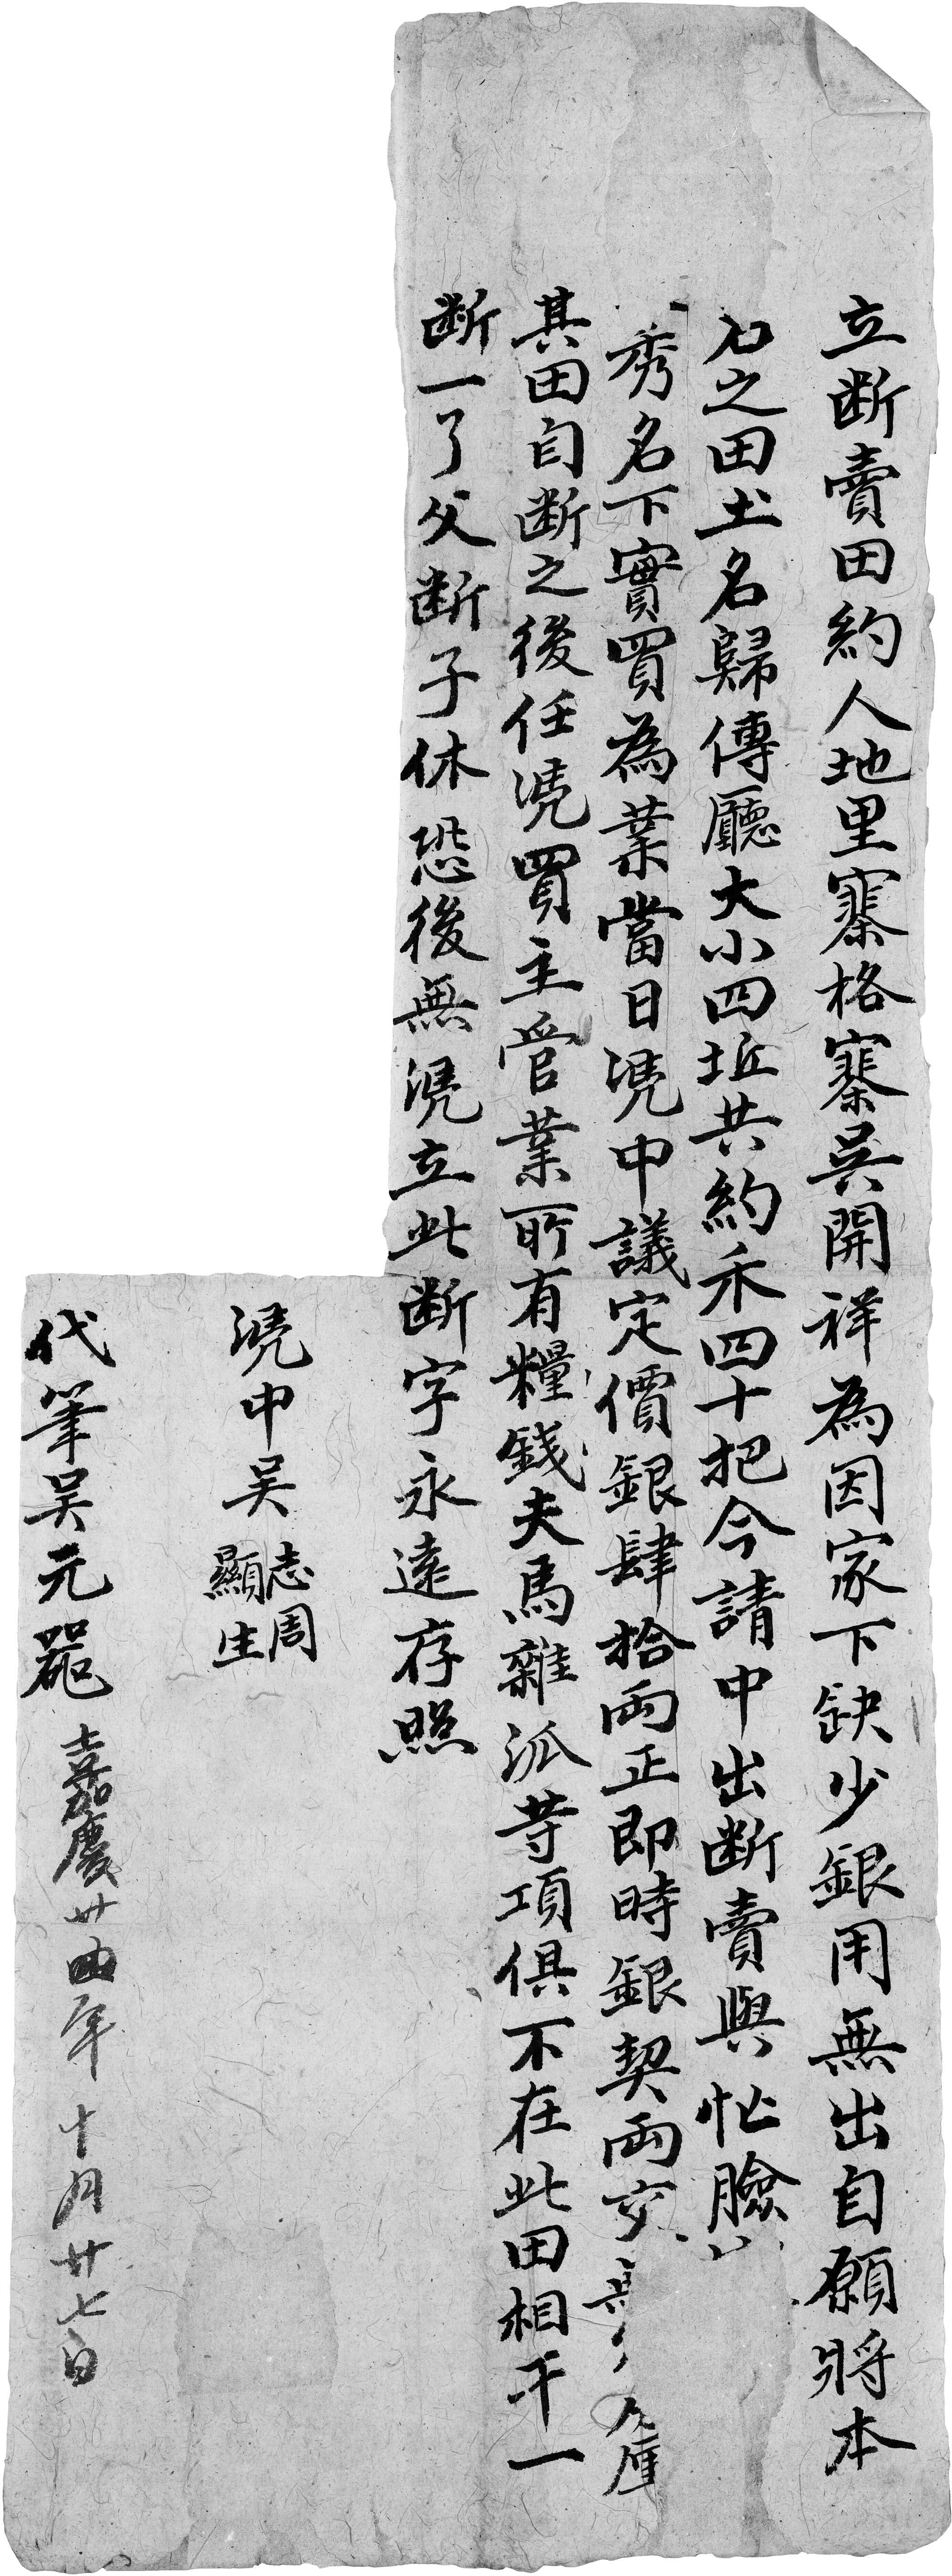 立断賣田約人地里寨格寨吴開祥為因家下缺少銀用無出自願將本
名之田土名歸傳廳大小四坵共約禾四十把今請中出断賣與忙臉
秀名下實買為業當日凴中議定價銀肆拾両正即時銀契両交
其田自断之後任凴買主管業所有糧錢夫馬雜派等項俱不在此田相干一
断一了父断子休恐後無凴立此断字永遠存照
凴中吴志周顯生
代筆吴元器
嘉慶廿四年十月廿七日